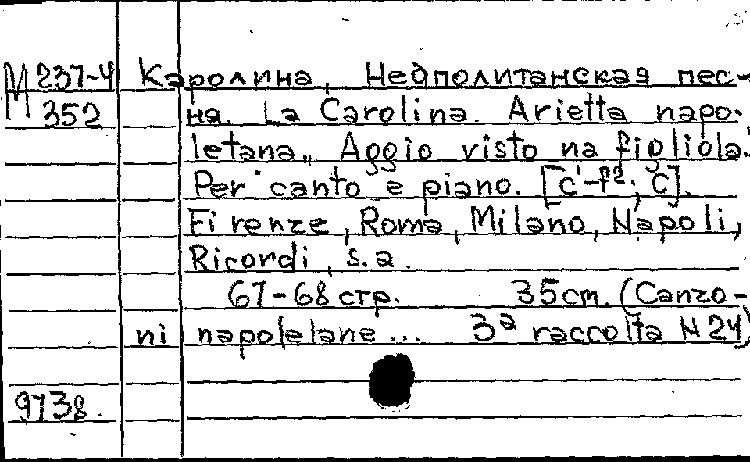 М 237-4 Каролина. Неаполитанская пес-
352 ня. La Carolina. Arietta napo-
letana „Aggio visto na figliola."
Per canto e piano. [c¹-f²; C].
Firenze, Roma, Milano, Napoli,
Ricordi, s.a.
67-68 стр. 35cm. (Canzo-
ni napoletane... 3ª raccolta N 24)
9738.